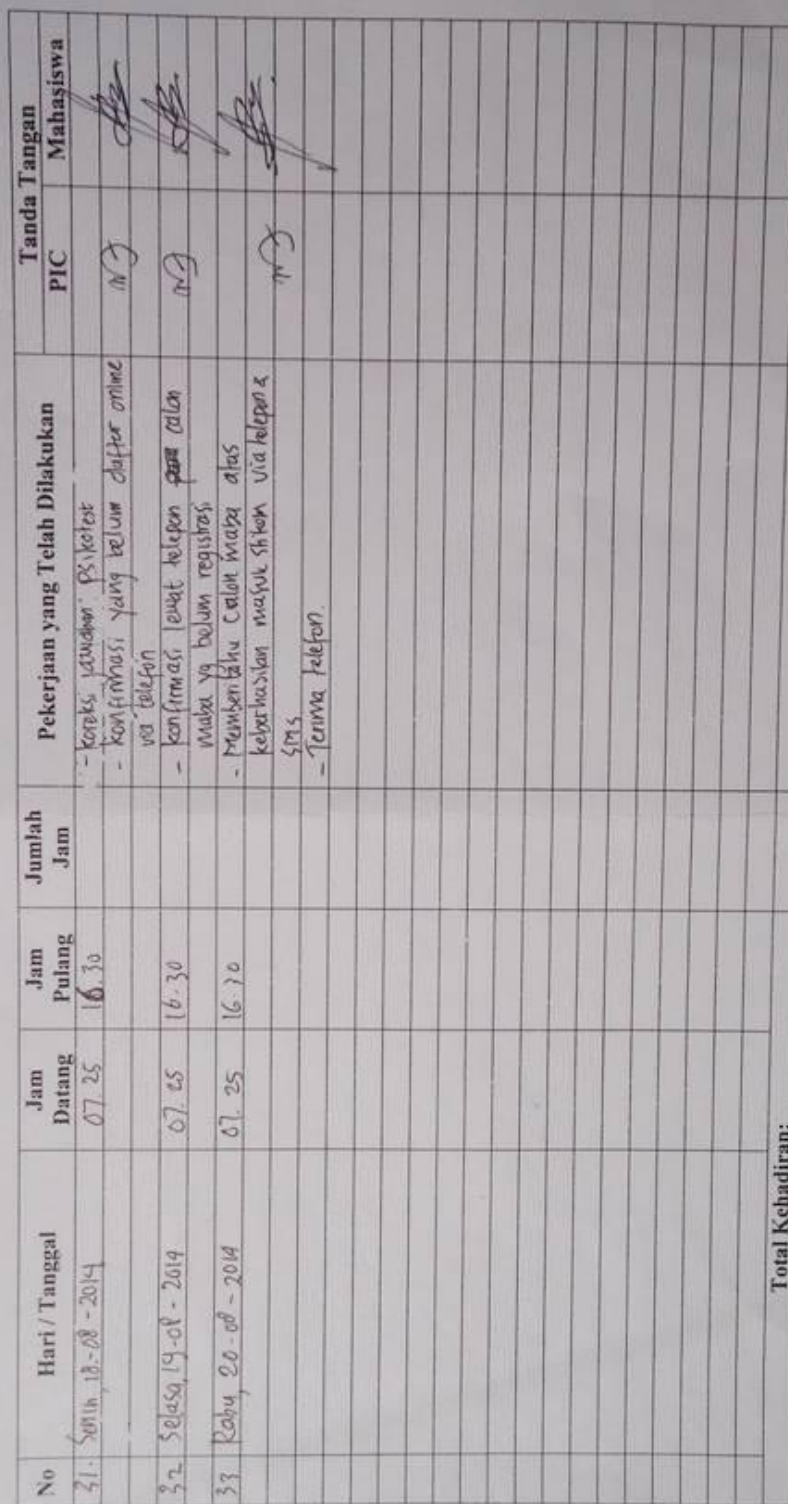 No Hari / Tanggal Jam Datang Jam Pulang Jumlah Jam Pekerjaan yang Telah Dilakukan Tanda Tangan
PIC Mahasiswa
31. Senin, 18-08-2014 07.25 16.30 - koreksi jawaban psikotest
- konfirmasi yang belum daftar online
via telefon
32 Selasa, 19-08-2014 07.25 16.30 - konfirmasi lewat telepon calon
maba yg belum registrasi
33 Rabu, 20-08-2014 07.25 16.30 - Memberitahu calon maba atas
keberhasilan masuk stikom via telepon &
SMS
- Terima telefon.
Total Kehadiran: